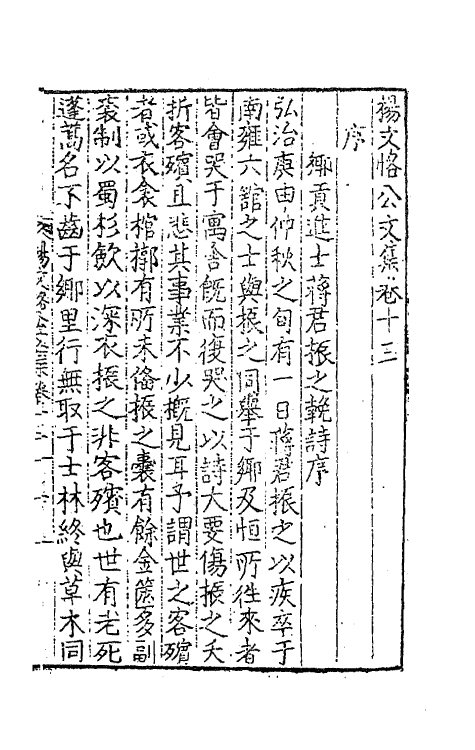 楊文恪公文集卷十三
序
鄉貢進士蔣君振之輓詩序
弘治庚申仲秋之旬有一日蔣君振之以疾卒于
南雍六舘之士與振之同舉于鄉及恒所徃來者
皆會哭于寓舍旣而復哭之以詩大要傷振之夭
折客殯且悲其事業不少概見耳予謂世之客殯
者或衣衾棺槨有所未偹振之囊有餘金篋多副
裘制以蜀杉歛以深衣振之非客殯也世有老死
蓬蒿名不齒于鄉里行無取于士林終與草木同
楊文恪公文集卷十三